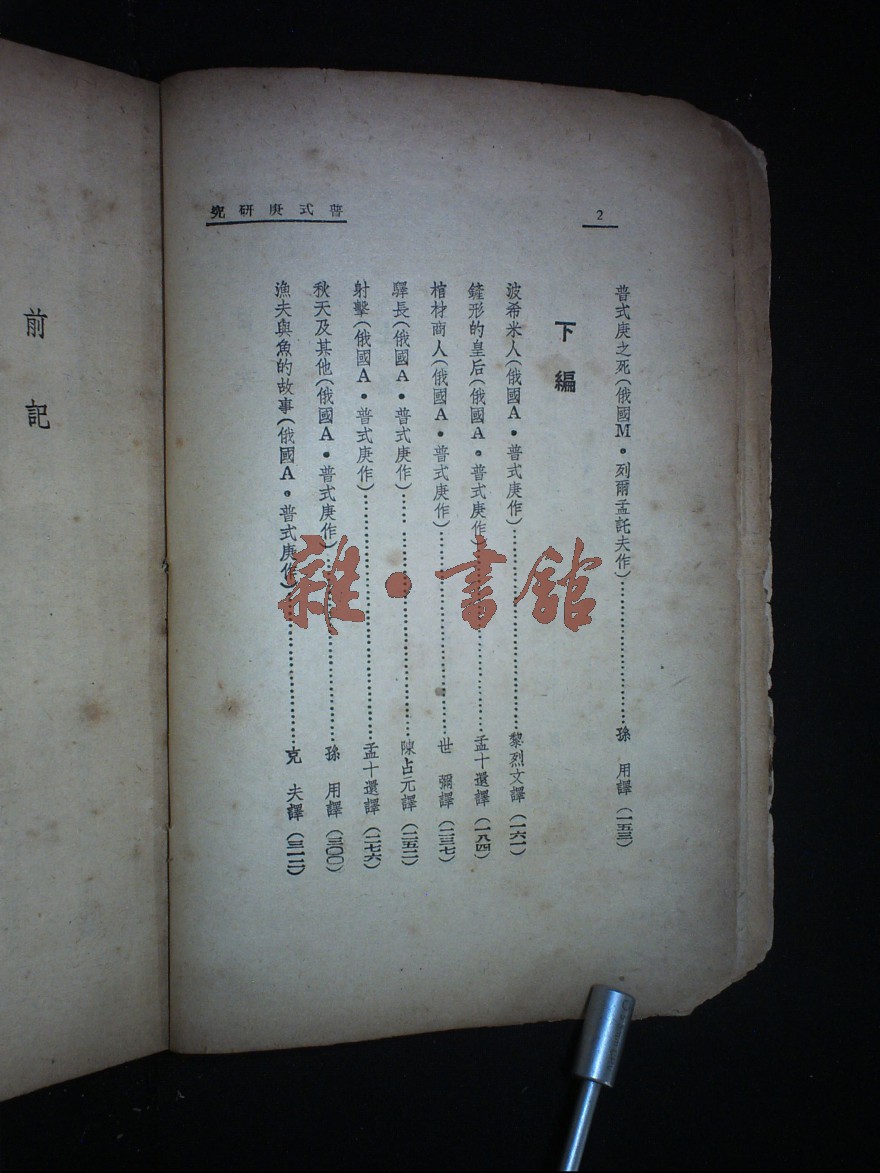 普式庚研究
2
普式庚之死(俄國M・列爾孟託夫作)……孫 用譯(一五三)
下編
波希米人(俄國A・普式庚作)……黎烈文譯(一六一)
鏟形的皇后(俄國A・普式庚作)……孟十還譯(一八四)
棺材商人(俄國A・普式庚作)……世 彌譯(二三七)
驛長(俄國A・普式庚作)……陳占元譯(二五二)
射擊(俄國A・普式庚作)……孟十還譯(二七六)
秋天及其他(俄國A・普式庚作)……孫 用譯(三〇〇)
漁夫與魚的故事(俄國A・普式庚作)……克 夫譯(三一二)
前記
雜・書館